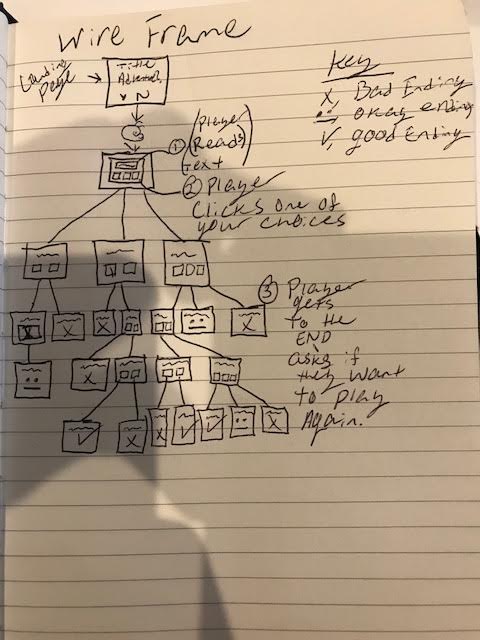 Wire Frame
Landing
Page
Title
Y N
Key
X, Bad Ending
okay ending
✓, good Ending
① (Player
Reads)
text
② Player
Clicks one of
your choices
③ Player
gets
to the
END
asks if
they want
to play
Again.